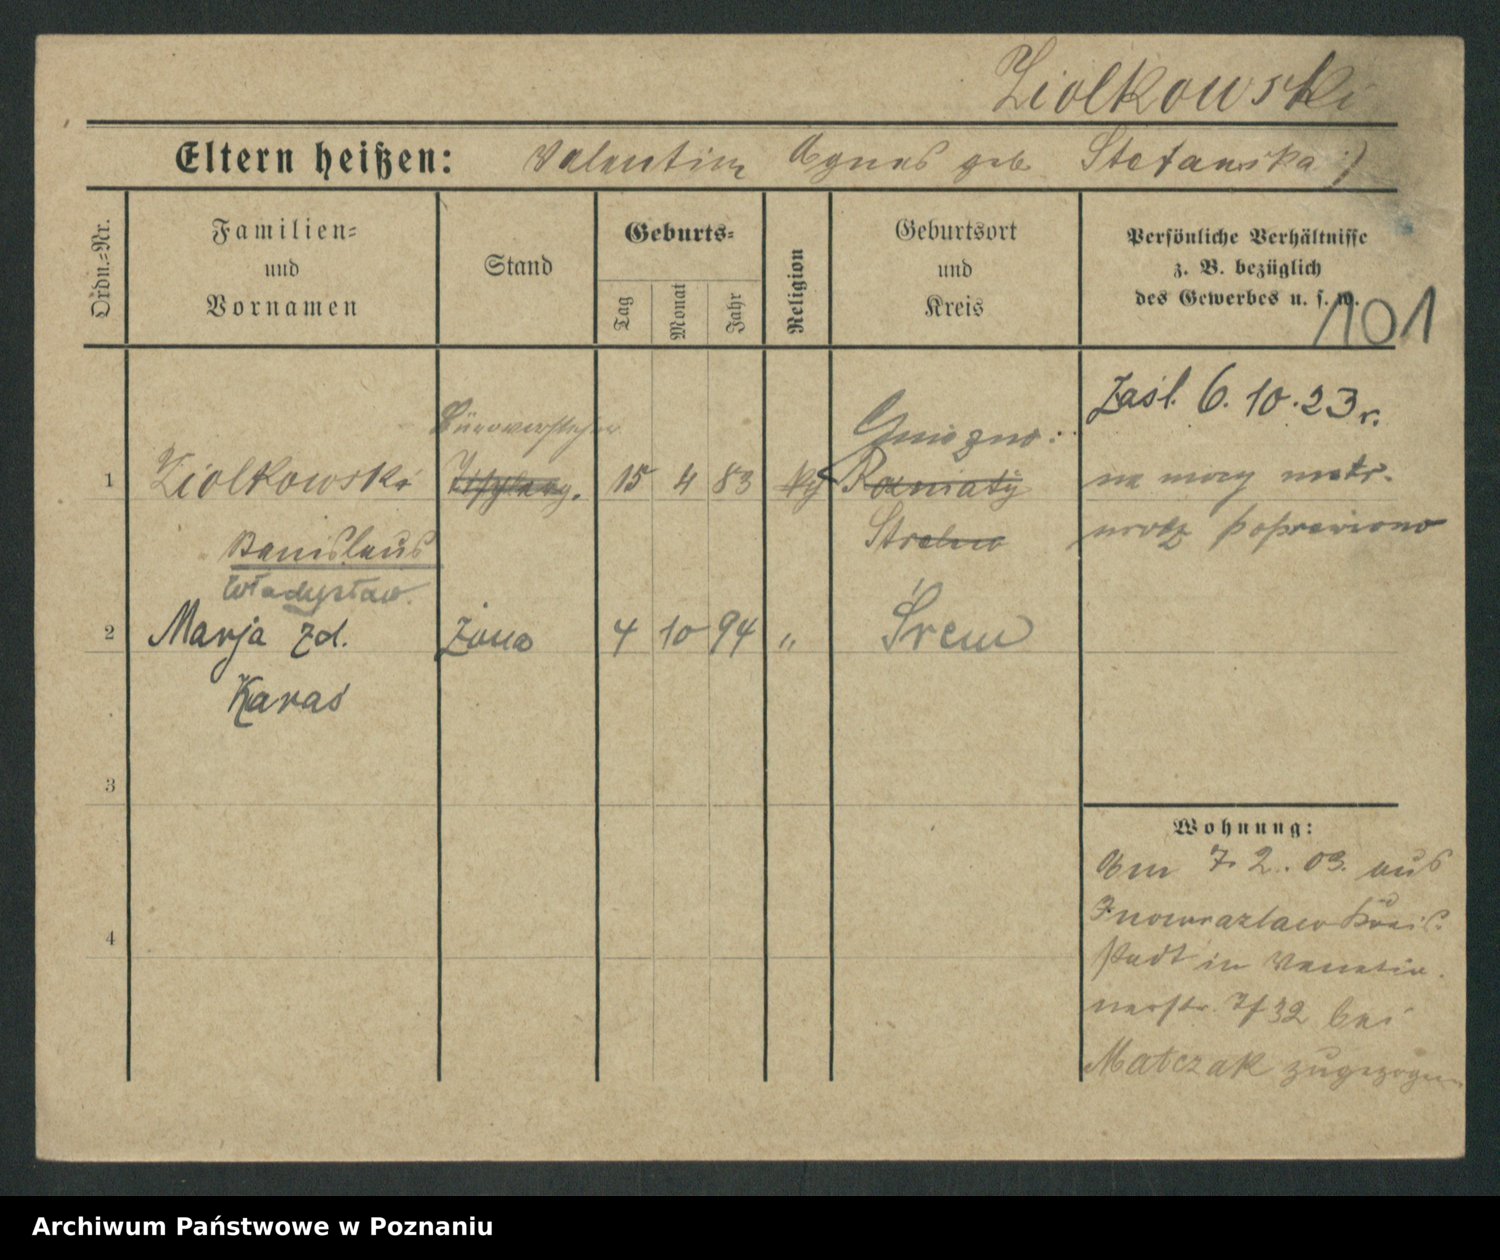 Ziolkowski
Eltern heißen: Valentin Agnes geb. Stefanska :)
Ordn.-Nr.
Familien-
und
Vornamen
Stand
Geburts-
Tag
Monat
Jahr
Religion
Geburtsort
und
Kreis
Persönliche Verhältnisse
z. B. bezüglich
des Gewerbes u. s. w.
101
Zaśl. 6.10.23 r.
Bürovorsteher
Gniezno:
1 Ziolkowski 15 4 83 Rozniaty
na mocy metr.
Strelno
urodz poprawiono
Stanislaus
Władysław.
2 Marja zd. żona 4 10 94 " Śrem
Karaś
3
4
Wohnung:
Am 7. 2. 03. aus
Inowrazlaw Kreis
Stadt in Venetia-
nerstr. 32 bei
Matczak zugezogen
Archiwum Państwowe w Poznaniu